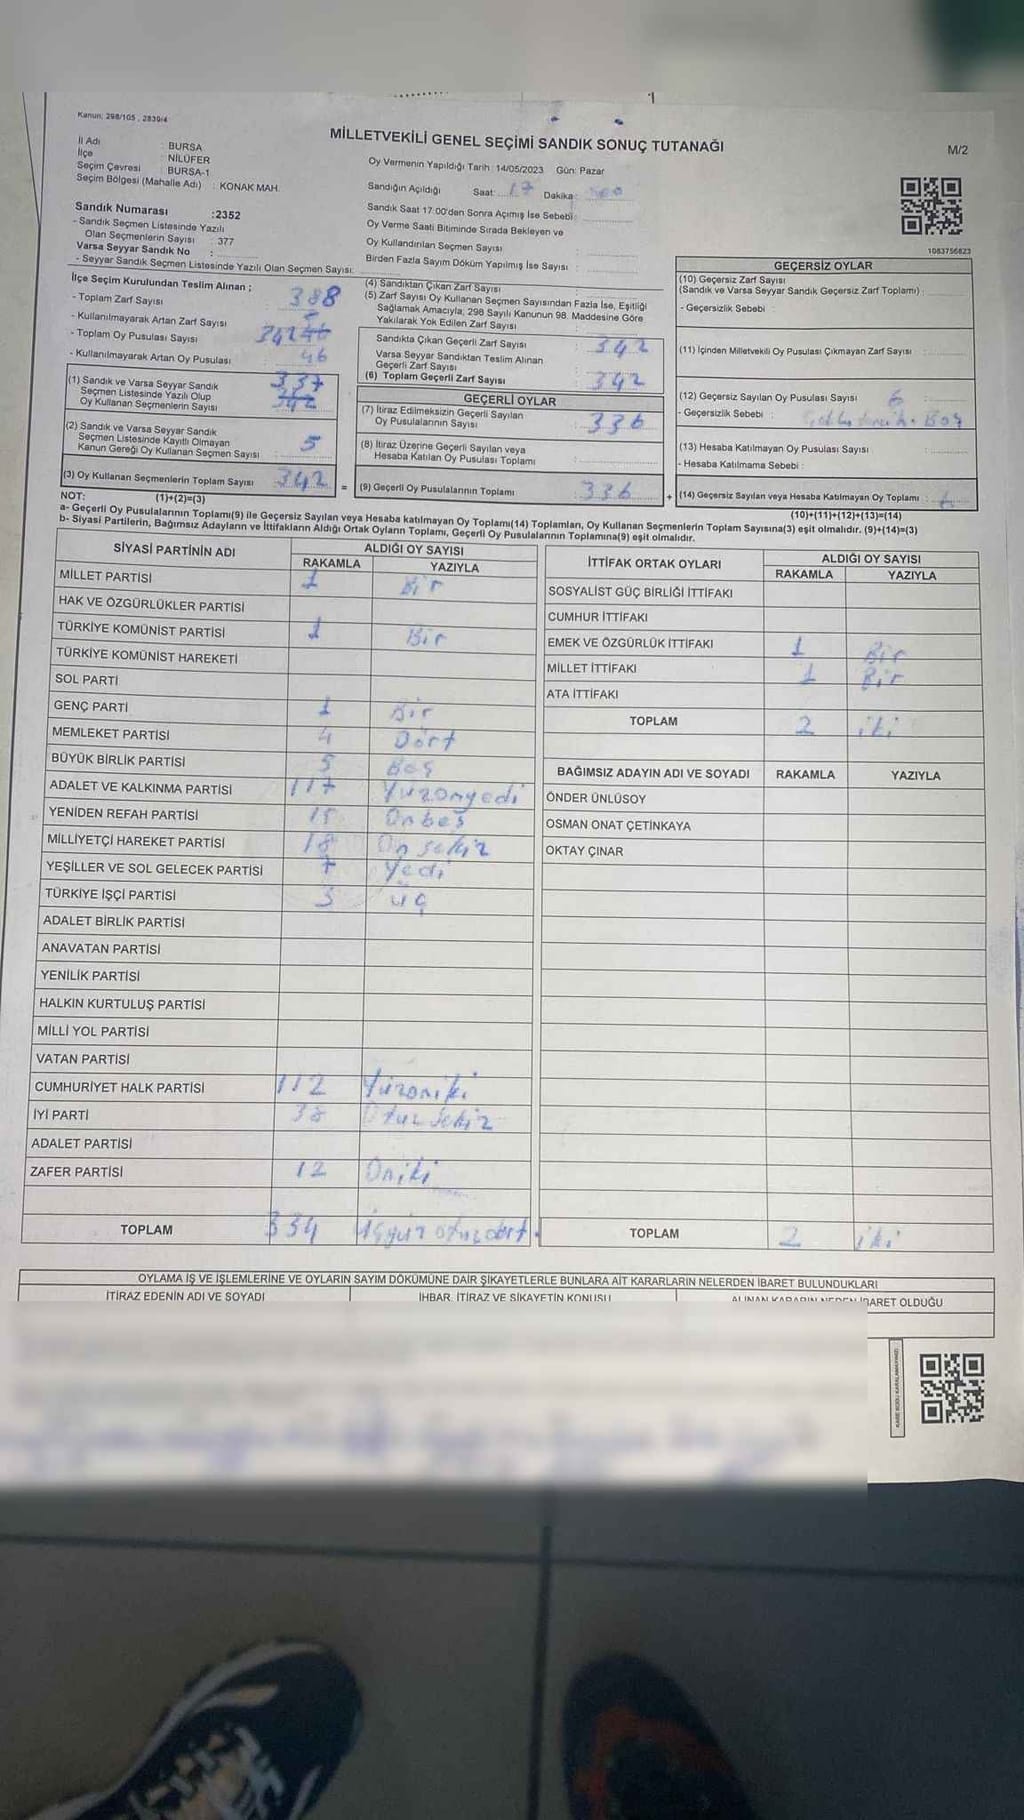 Kanun: 298/105, 2839/4
MİLLETVEKİLİ GENEL SEÇİMİ SANDIK SONUÇ TUTANAĞI
M/2
İl Adı : BURSA
İlçe : NİLÜFER
Seçim Çevresi : BURSA-1
Seçim Bölgesi (Mahalle Adı) : KONAK MAH.
Oy Vermenin Yapıldığı Tarih: 14/05/2023 Gün: Pazar
Sandığın Açıldığı Saat: 17 Dakika:
Sandık Saat 17:00'den Sonra Açımış İse Sebebi:
Oy Verme Saati Bitiminde Sırada Bekleyen ve
Oy Kullandırılan Seçmen Sayısı :
Birden Fazla Sayım Döküm Yapılmış İse Sayısı :
1083756823
Sandık Numarası :2352
- Sandık Seçmen Listesinde Yazılı
Olan Seçmenlerin Sayısı : 377
Varsa Seyyar Sandık No :
- Seyyar Sandık Seçmen Listesinde Yazılı Olan Seçmen Sayısı:
İlçe Seçim Kurulundan Teslim Alınan ;
- Toplam Zarf Sayısı : 388
- Kullanılmayarak Artan Zarf Sayısı
- Toplam Oy Pusulası Sayısı
- Kullanılmayarak Artan Oy Pusulası 46
(1) Sandık ve Varsa Seyyar Sandık
Seçmen Listesinde Yazılı Olup
Oy Kullanan Seçmenlerin Sayısı 337 342
(2) Sandık ve Varsa Seyyar Sandık
Seçmen Listesinde Kayıtlı Olmayan
Kanun Gereği Oy Kullanan Seçmen Sayısı : 5
(3) Oy Kullanan Seçmenlerin Toplam Sayısı : 342
(4) Sandıktan Çıkan Zarf Sayısı :
(5) Zarf Sayısı Oy Kullanan Seçmen Sayısından Fazla İse, Eşitliği
Sağlamak Amacıyla, 298 Sayılı Kanunun 98. Maddesine Göre
Yakılarak Yok Edilen Zarf Sayısı :
Sandıkta Çıkan Geçerli Zarf Sayısı : 342
Varsa Seyyar Sandıktan Teslim Alınan
Geçerli Zarf Sayısı :
(6) Toplam Geçerli Zarf Sayısı : 342
GEÇERLİ OYLAR
(7) İtiraz Edilmeksizin Geçerli Sayılan
Oy Pusulalarının Sayısı : 336
(8) İtiraz Üzerine Geçerli Sayılan veya
Hesaba Katılan Oy Pusulası Toplamı :
= (9) Geçerli Oy Pusulalarının Toplamı : 336
GEÇERSİZ OYLAR
(10) Geçersiz Zarf Sayısı
(Sandık ve Varsa Seyyar Sandık Geçersiz Zarf Toplamı) :
- Geçersizlik Sebebi :
(11) İçinden Milletvekili Oy Pusulası Çıkmayan Zarf Sayısı :
(12) Geçersiz Sayılan Oy Pusulası Sayısı : 6
- Geçersizlik Sebebi : Boş
(13) Hesaba Katılmayan Oy Pusulası Sayısı :
- Hesaba Katılmama Sebebi :
+ (14) Geçersiz Sayılan veya Hesaba Katılmayan Oy Toplamı : 6
NOT: (1)+(2)=(3) (10)+(11)+(12)+(13)=(14)
a- Geçerli Oy Pusulalarının Toplamı(9) ile Geçersiz Sayılan veya Hesaba katılmayan Oy Toplamı(14) Toplamları, Oy Kullanan Seçmenlerin Toplam Sayısına(3) eşit olmalıdır. (9)+(14)=(3)
b- Siyasi Partilerin, Bağımsız Adayların ve İttifakların Aldığı Ortak Oyların Toplamı, Geçerli Oy Pusulalarının Toplamına(9) eşit olmalıdır.
SİYASİ PARTİNİN ADI ALDIĞI OY SAYISI
RAKAMLA YAZIYLA
MİLLET PARTİSİ 1 Bir
HAK VE ÖZGÜRLÜKLER PARTİSİ
TÜRKİYE KOMÜNİST PARTİSİ 1 Bir
TÜRKİYE KOMÜNİST HAREKETİ
SOL PARTİ
GENÇ PARTİ 1 Bir
MEMLEKET PARTİSİ 4 Dört
BÜYÜK BİRLİK PARTİSİ 5 Beş
ADALET VE KALKINMA PARTİSİ 117 Yüzonyedi
YENİDEN REFAH PARTİSİ 15 Onbeş
MİLLİYETÇİ HAREKET PARTİSİ 18 On sekiz
YEŞİLLER VE SOL GELECEK PARTİSİ 7 Yedi
TÜRKİYE İŞÇİ PARTİSİ 3 üç
ADALET BİRLİK PARTİSİ
ANAVATAN PARTİSİ
YENİLİK PARTİSİ
HALKIN KURTULUŞ PARTİSİ
MİLLİ YOL PARTİSİ
VATAN PARTİSİ
CUMHURİYET HALK PARTİSİ 112 Yüzoniki
İYİ PARTİ 38 Otuz Sekiz
ADALET PARTİSİ
ZAFER PARTİSİ 12 Oniki
TOPLAM 334 üçyüz otuzdört
İTTİFAK ORTAK OYLARI ALDIĞI OY SAYISI
RAKAMLA YAZIYLA
SOSYALİST GÜÇ BİRLİĞİ İTTİFAKI
CUMHUR İTTİFAKI
EMEK VE ÖZGÜRLÜK İTTİFAKI 1 Bir
MİLLET İTTİFAKI 1 Bir
ATA İTTİFAKI
TOPLAM 2 iki
BAĞIMSIZ ADAYIN ADI VE SOYADI RAKAMLA YAZIYLA
ÖNDER ÜNLÜSOY
OSMAN ONAT ÇETİNKAYA
OKTAY ÇINAR
TOPLAM 2 iki
OYLAMA İŞ VE İŞLEMLERİNE VE OYLARIN SAYIM DÖKÜMÜNE DAİR ŞİKAYETLERLE BUNLARA AİT KARARLARIN NELERDEN İBARET BULUNDUKLARI
İTİRAZ EDENİN ADI VE SOYADI İHBAR, İTİRAZ VE ŞİKAYETİN KONUSU ALINAN KARARIN NEDEN İBARET OLDUĞU